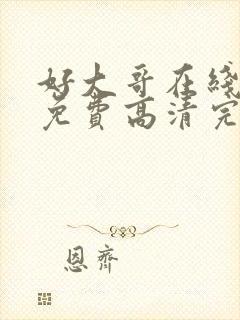 好大哥在綫
免費高清完
恩齊